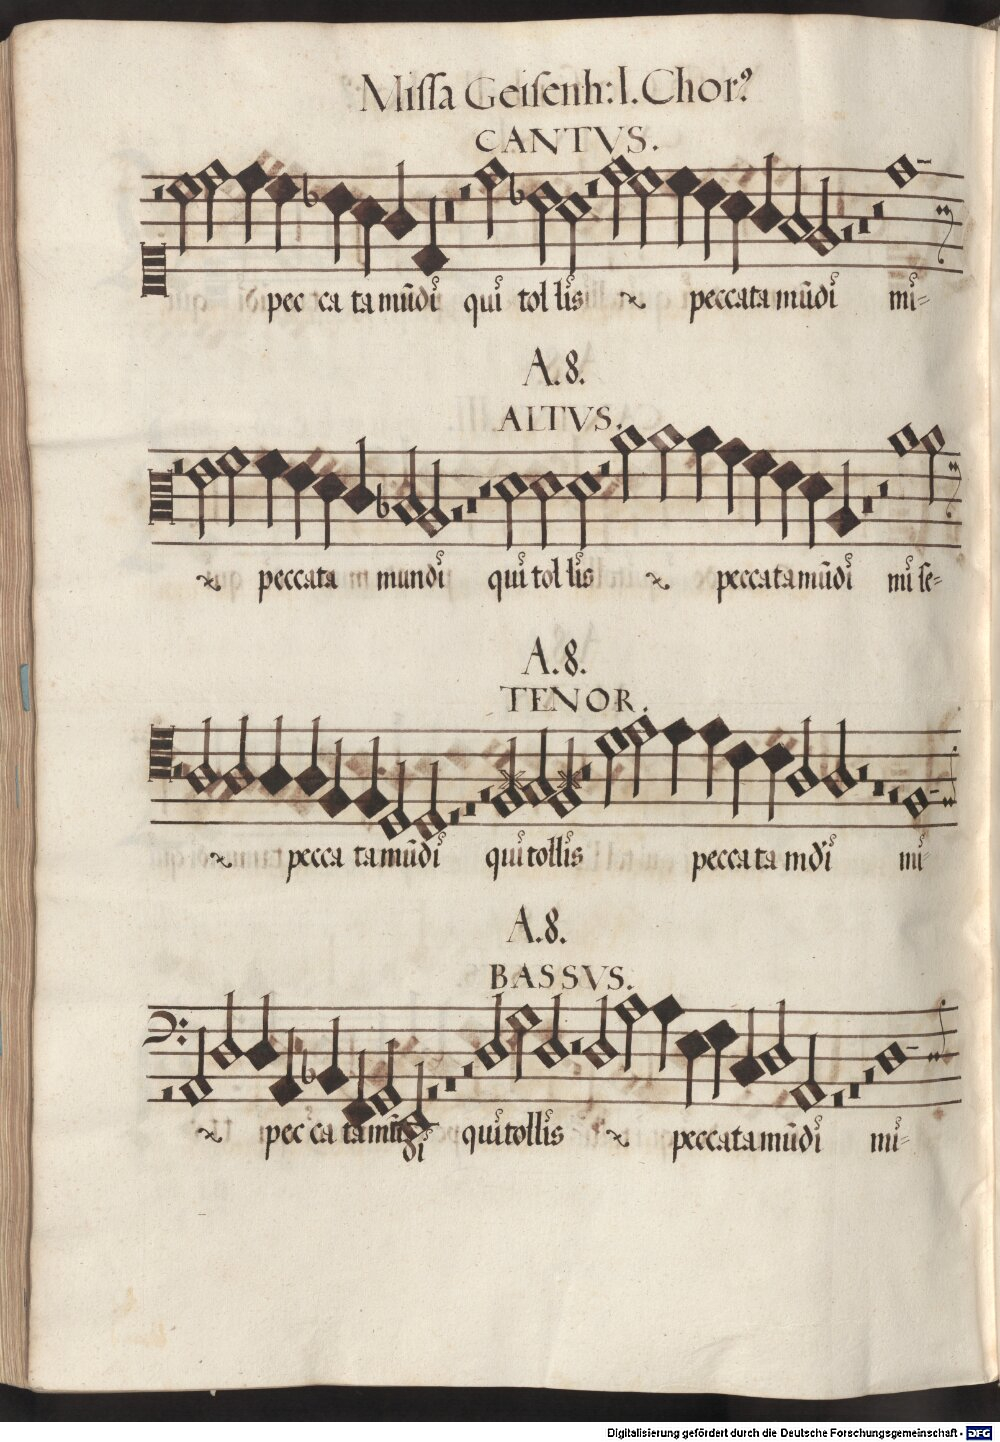 Missa Geisenh: I. Chor9
CANTVS.
pec ca ta mūdi qui tol lis peccata mūdi mi=
A. 8.
ALTVS.
peccata mundi qui tol lis peccata mūdi mi se=
A. 8.
TENOR.
pecca ta mūdi qui tollis pecca ta mdi mi=
A. 8.
BASSVS.
pec ca ta mūdi qui tollis peccata mūdi mi=
Digitalisierung gefördert durch die Deutsche Forschungsgemeinschaft - DFG